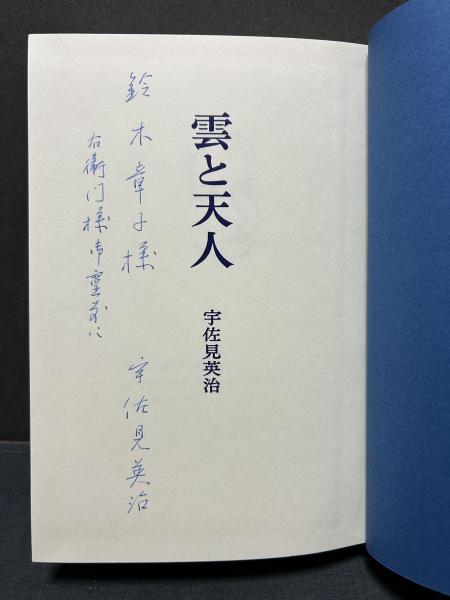 雲と天人
宇佐見英治
鈴木章子様
右衛门様御霊前に
宇佐見英治